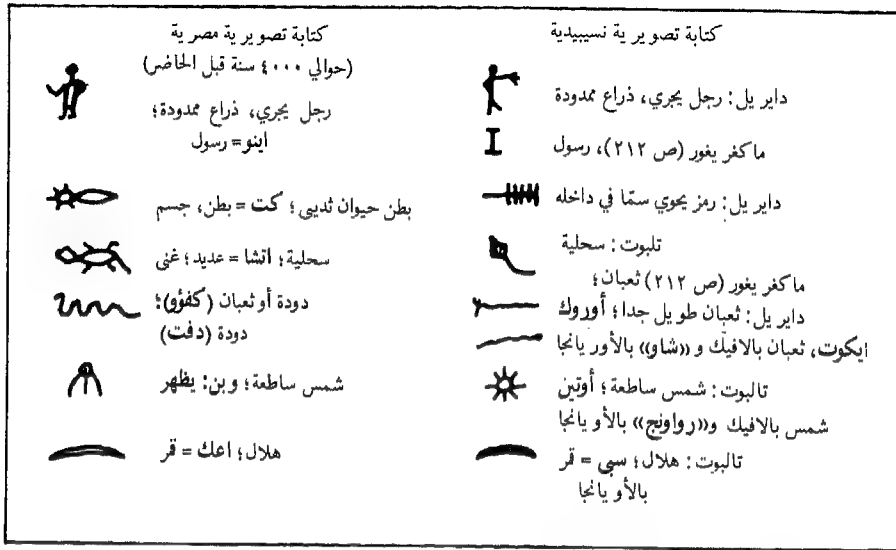 كتابة تصويرية نسيبيدية
داير يل: رجل يجري، ذراع ممدودة
ماكفر يغور (ص ٢١٢)، رسول
داير يل: رمز يحوي سمّا في داخله
تلبوت: سحلية
ماكفر يغور (ص ٢١٢) ثعبان؛
داير يل: ثعبان طويل جدا؛ أوروك
ايكوت، ثعبان بالافيك و «شاو» بالأور يانجا
تالبوت: شمس ساطعة؛ أوتين
شمس بالافيك و«رواونج» بالأو يانجا
تالبوت: هلال؛ سبى = قمر
بالأو يانجا
كتابة تصويرية مصرية
(حوالي ٤٠٠٠ سنة قبل الحاضر)
رجل يجري، ذراع ممدودة؛
اينو = رسول
بطن حيوان ثديى؛ كت = بطن، جسم
سحلية؛ اتشا = عديد؛ غنى
دودة أو ثعبان (كفؤو)؛
دودة (دفت)
شمس ساطعة؛ وبن: يظهر
هلال؛ اعك = قمر